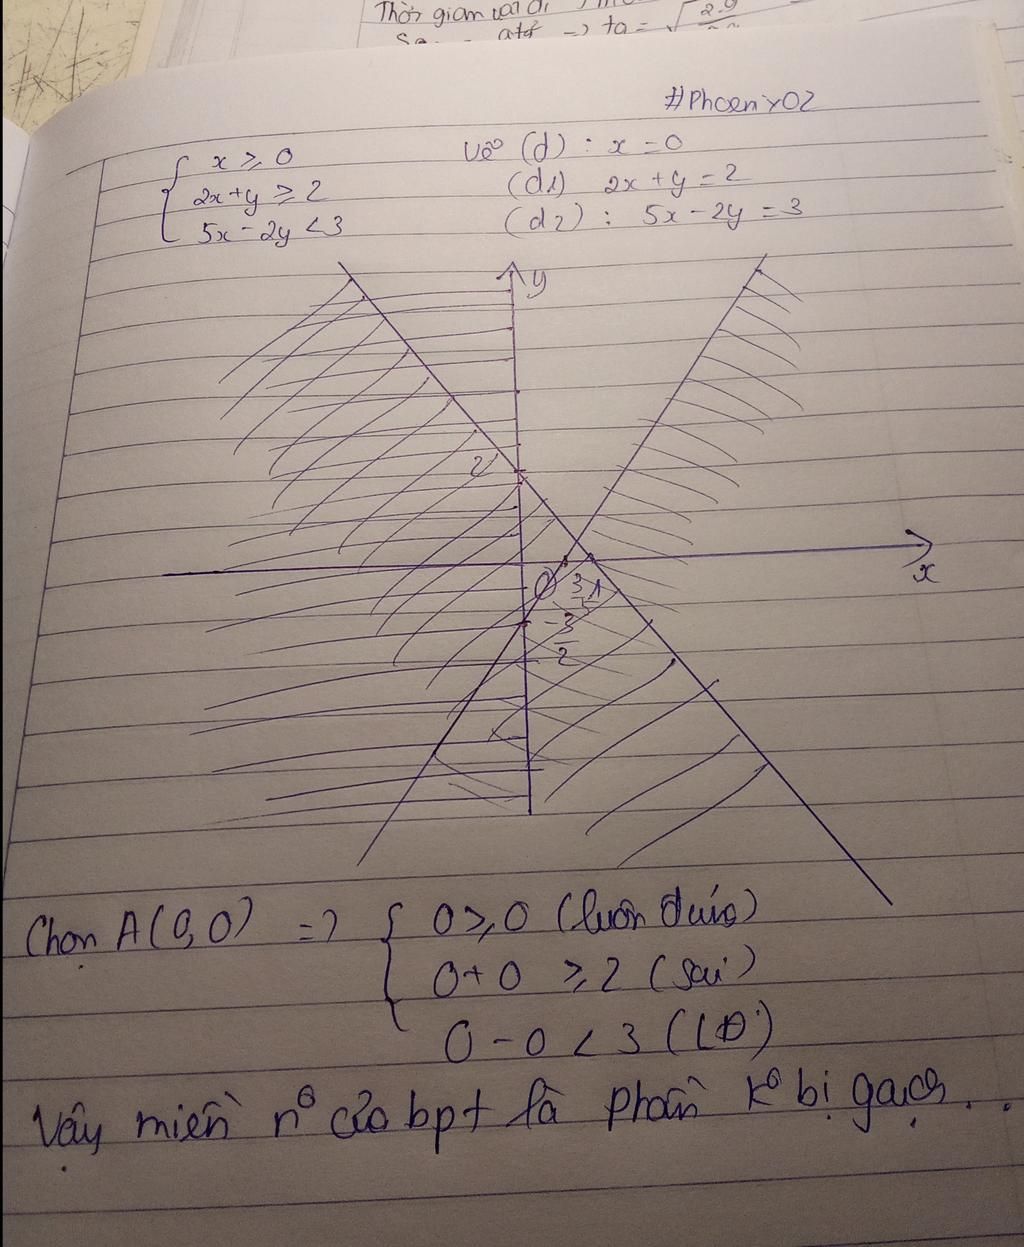 Thời gian vật đi
→ ta = √
#Phoenix02
{ x ≥ 0
2x + y ≥ 2
5x - 2y < 3
Vẽ (d) : x = 0
(d1) 2x + y = 2
(d2) : 5x - 2y = 3
y
2
x
O 3/5 1
-3/2
Chọn A(0,0) => { 0 ≥ 0 (luôn đúng)
0 + 0 ≥ 2 (sai)
0 - 0 < 3 (LĐ)
Vậy miền n° của bpt là phần k° bị gạch..